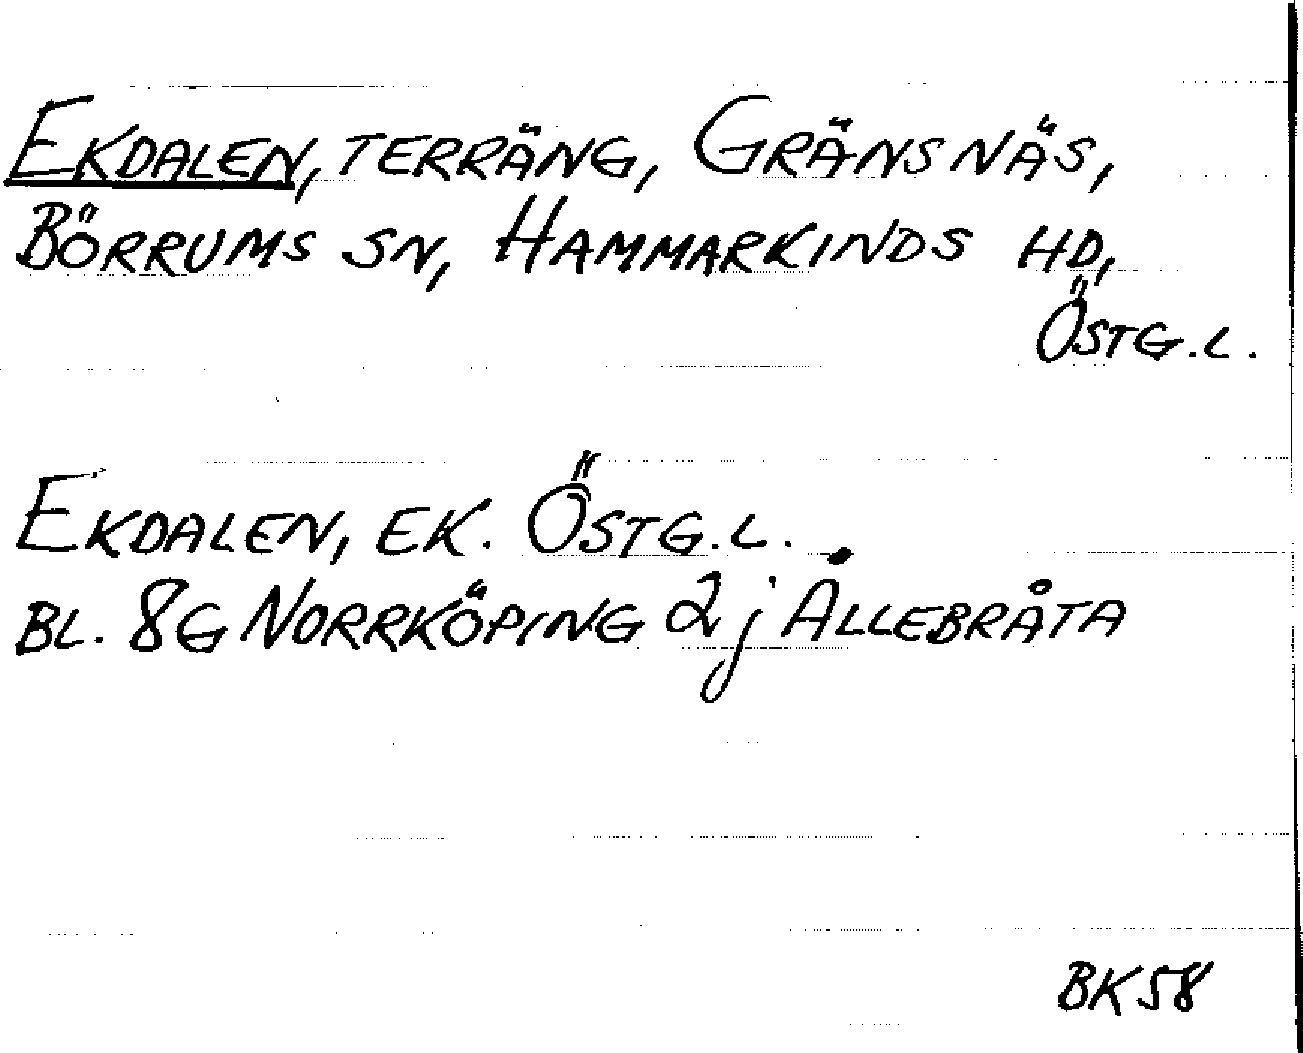 EKDALEN, TERRÄNG, GRÄNSNÄS,
BÖRRUMS SN, HAMMARKINDS HD,
ÖSTG.L.
EKDALEN, EK. ÖSTG.L.
BL. 8G NORRKÖPING 2j ÅLLEBRÅTA
BK58